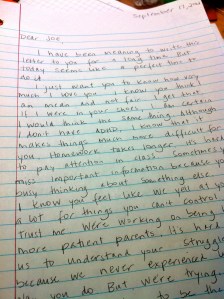 September 13, 2
Dear Joe
I have been meaning to write this
letter to you for a long time. But
today seems like a perfect time to
do it.
I just want you to know how very
much I love you. I know you think I
am mean and not fair. I get that.
If I were in your shoes, I am certain
I would think the same thing. Although
I don't have ADHD, I know that it
makes things much more difficult for
you. Homework takes longer, it's hard
to pay attention in class. Sometimes you
miss important information because you're
busy thinking about something else.
I know you feel like we yell at you
a lot for things you can't control.
Trust me we're working on being
more patient parents. It's hard for
us to understand your struggle
because we never experienced
like you do. But we're trying
to be the